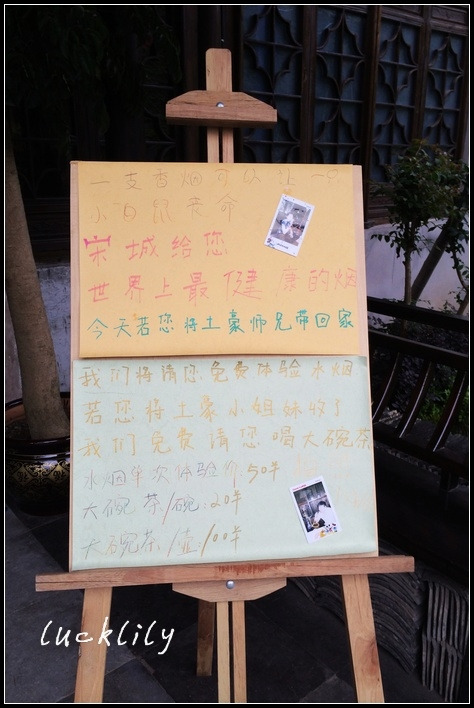 一支香烟可以让一只
小白鼠丧命
宋城给您
世界上最健康的烟
今天若您将土豪师兄带回家
我们将请您免费体验水烟
若您将土豪小姐妹收了
我们免费请您喝大碗茶
水烟单次体验价:50半
大碗茶/碗:20半
大碗茶/壶:100半
lucklily